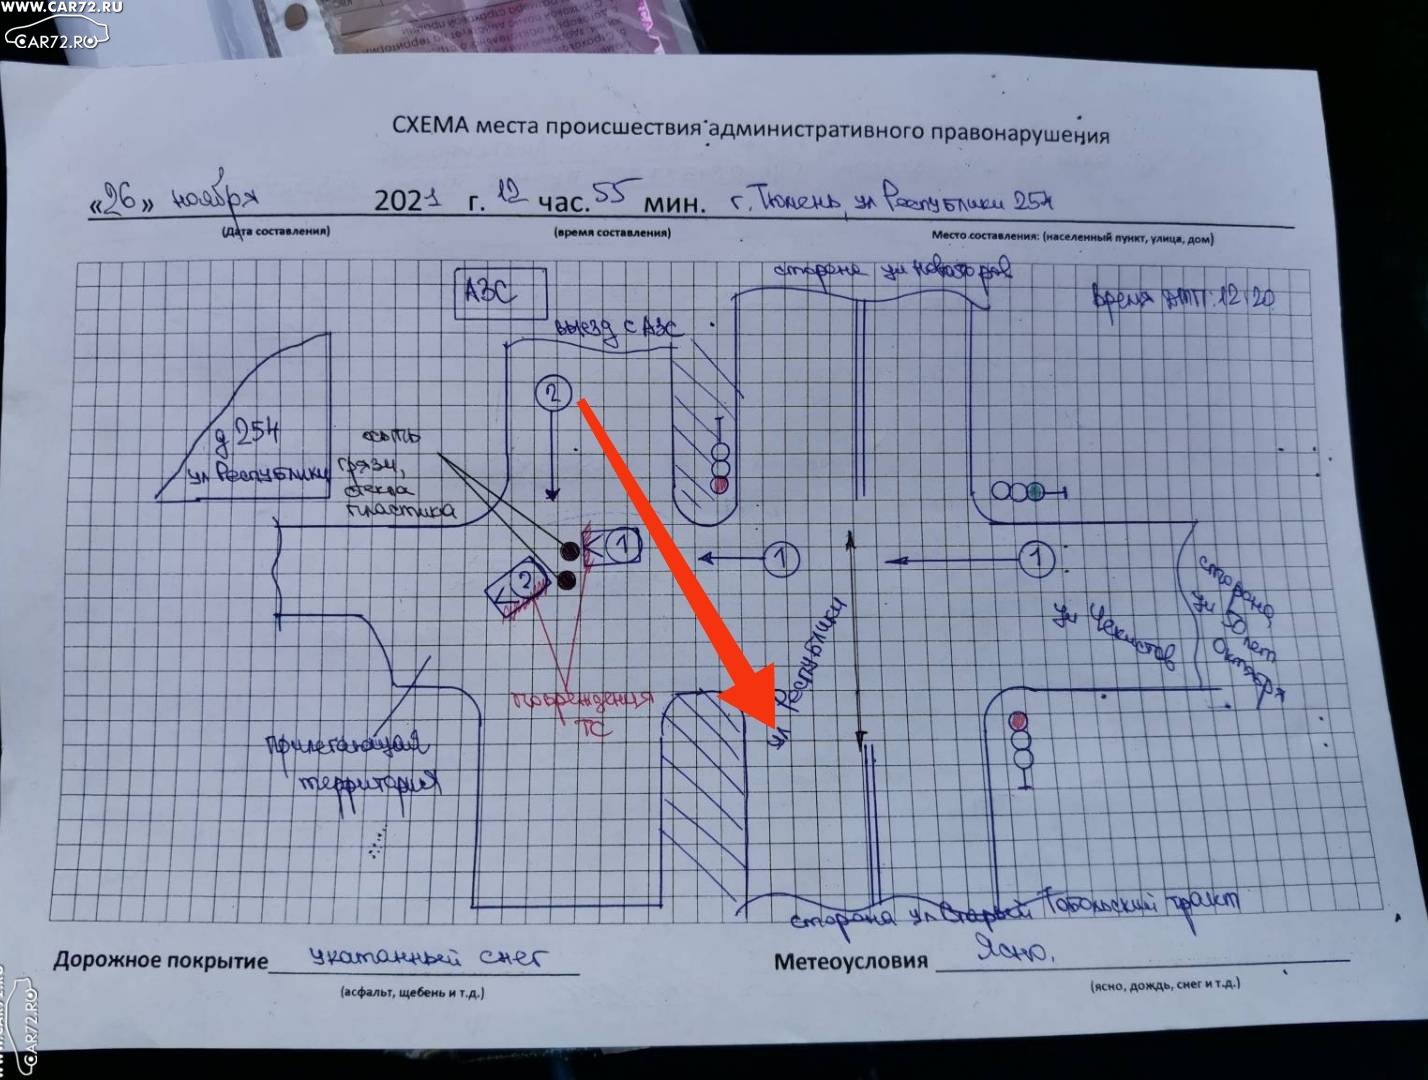 www.CAR72.RU
CAR72.RU
СХЕМА места происшествия административного правонарушения
«26» ноября 2021 г. 12 час. 55 мин. г. Тюмень, ул Республики 254
(Дата составления) (время составления) Место составления: (населенный пункт, улица, дом)
сторона ул Новаторов
АЗС
Время ДТП: 12:20
выезд с АЗС
2
д 254
ул Республики
грязи,
стекла
пластика
1
1
1
2
ул Республики
ул Чекистов
сторона
ул 50 лет
Октября
Повреждения
ТС
Прилегающая
территория
сторона ул Старый Тобольский тракт
Дорожное покрытие укатанный снег
(асфальт, щебень и т.д.)
Метеоусловия Ясно.
(ясно, дождь, снег и т.д.)
CAR72.RU